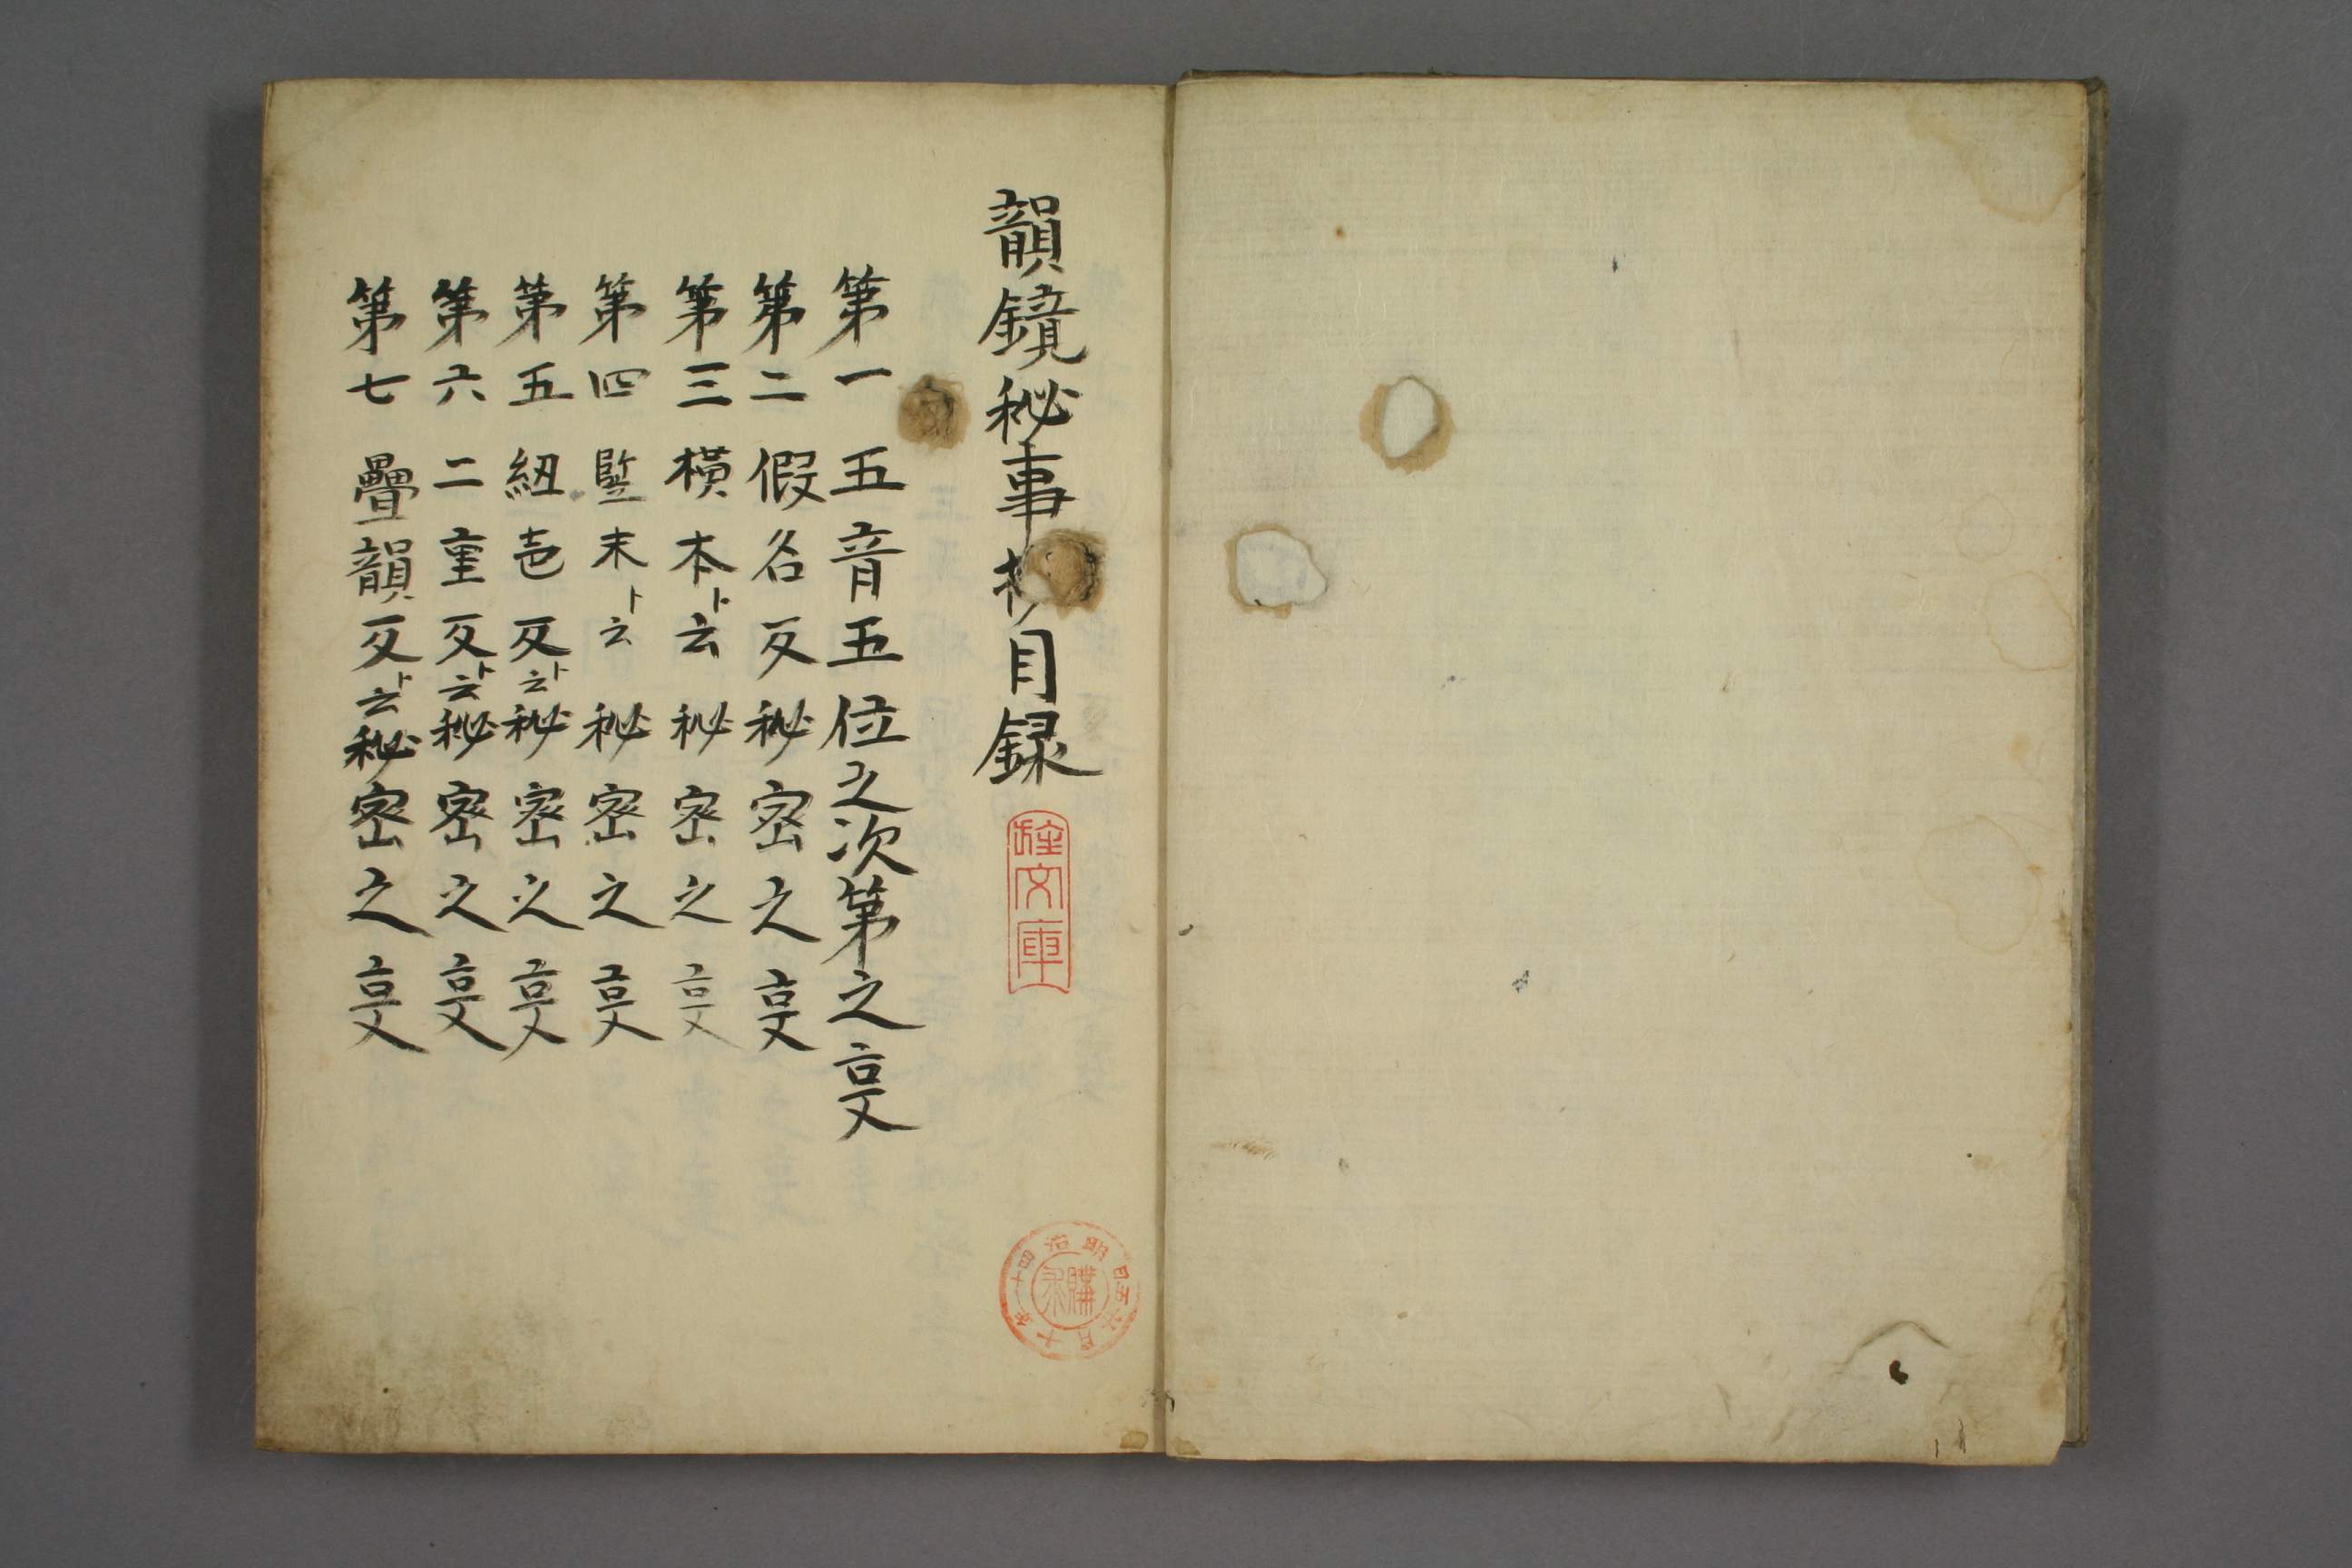 韻鏡秘事抄目録
第一 五音五位之次第之㕝
第二 假名反秘密之㕝
第三 横本ト云秘密之㕝
第四 竪末ト云秘密之㕝
第五 紐壱反ト云秘密之㕝
第六 二重反ト云秘密之㕝
第七 疊韻反ト云秘密之㕝
明治四十一年十月廿五日
購求